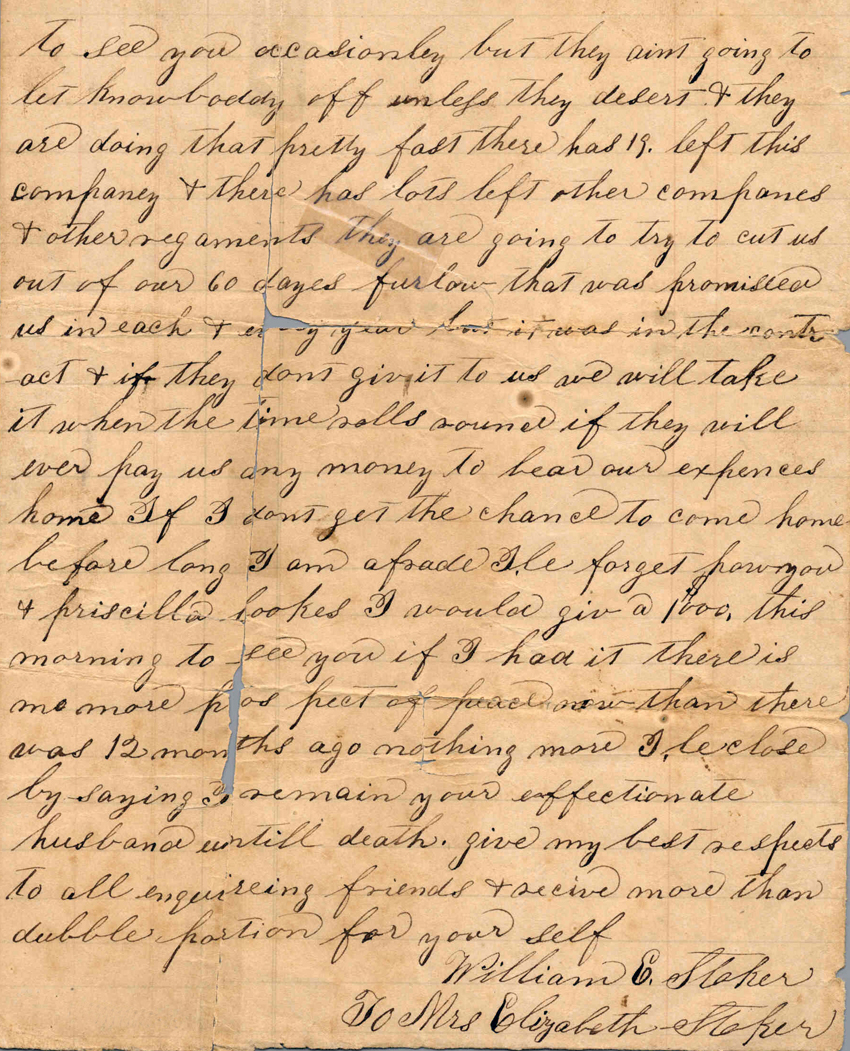 to see you occasionley but they aint going to
let knowboddy off unless they desert & they
are doing that pretty fast there has 19. left this
companey & there has lots left other companes
& other regaments they are going to try to cut us
out of our 60 dayes furlow that was promised
us in each & every year but it was in the contr
act & if they dont give it to us we will take
it when the time rolls round if they will
ever pay us any money to bear our expences
home If I dont get the chance to come home
before long I am afrade I,le forget how you
& priscilla lookes I would give a 1000, this
morning to see you if I had it there is
no more pros pect of peace now than there
was 12 months ago nothing more I,le close
by saying I remain your effectionate
husband untill death. give my best respects
to all enquireing friends & recive more than
dubble portion for your self
William E. Stoker
To Mrs Elizabeth Stoker